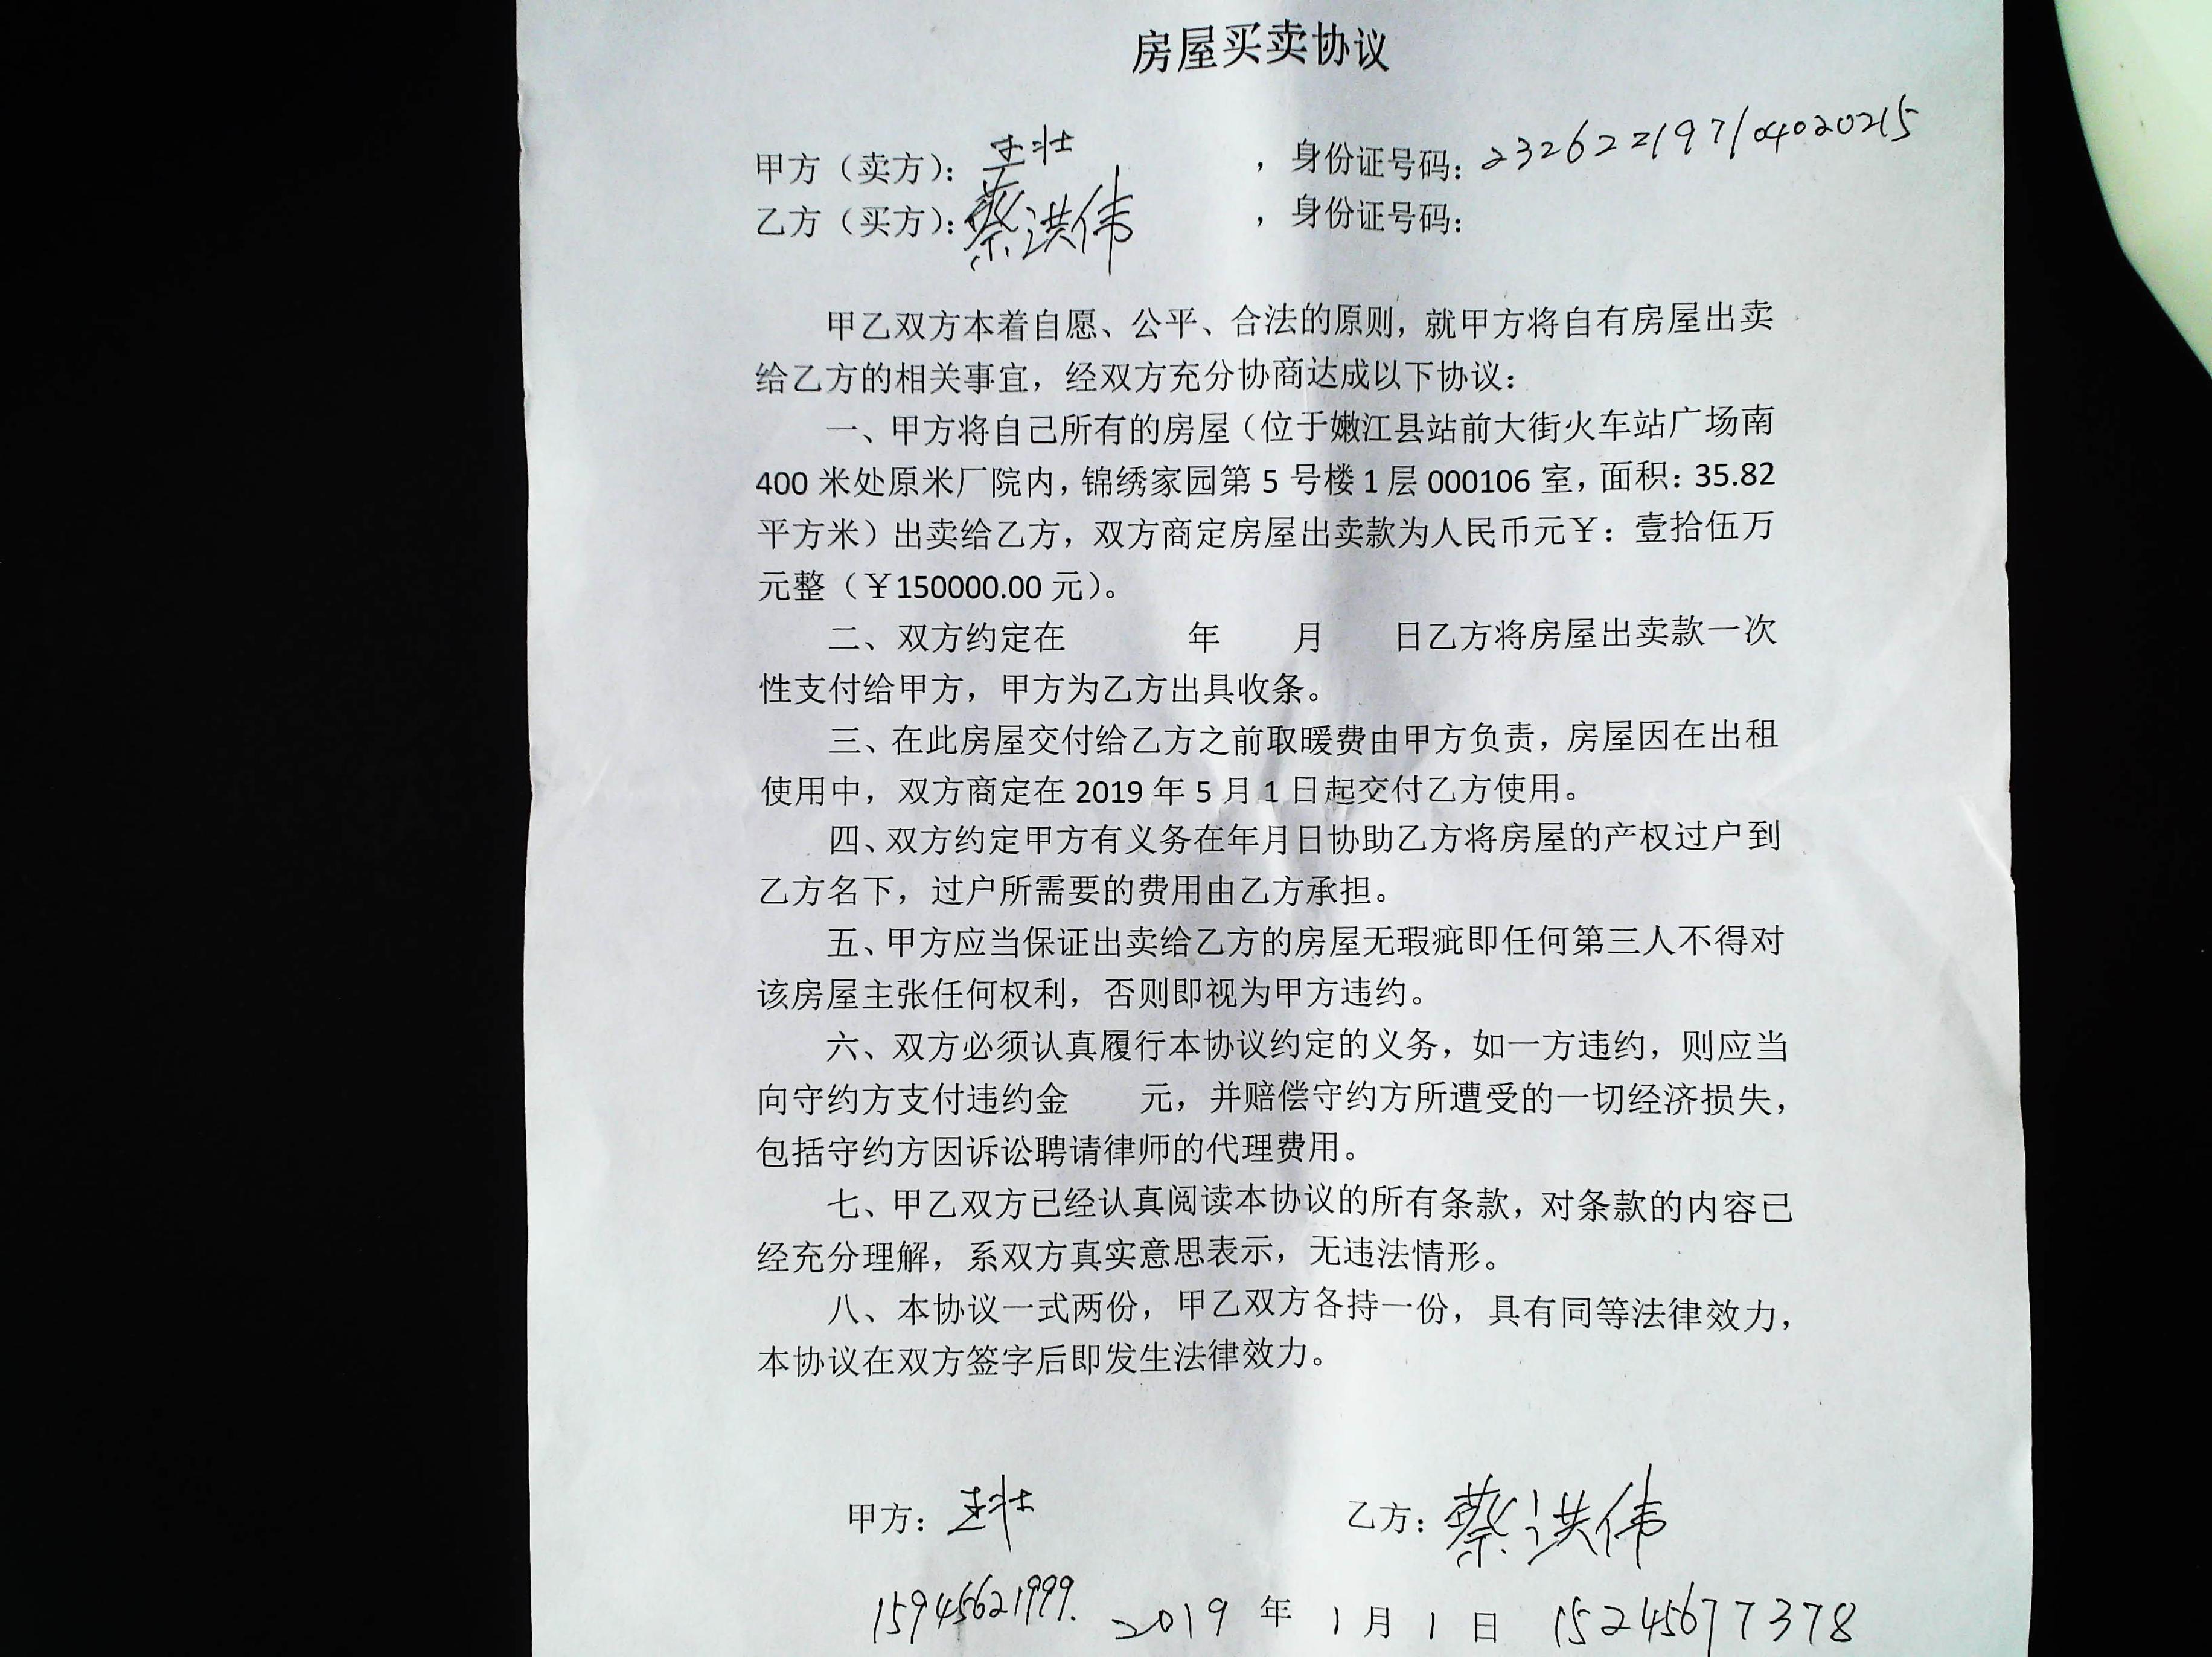 房屋买卖协议
甲方（卖方）：王壮 ，身份证号码：232622197104020215
乙方（买方）：蔡洪伟 ，身份证号码：
甲乙双方本着自愿、公平、合法的原则，就甲方将自有房屋出卖
给乙方的相关事宜，经双方充分协商达成以下协议：
一、甲方将自己所有的房屋（位于嫩江县站前大街火车站广场南
400 米处原米厂院内，锦绣家园第 5 号楼 1 层 000106 室，面积：35.82
平方米）出卖给乙方，双方商定房屋出卖款为人民币元￥：壹拾伍万
元整（￥150000.00 元）。
二、双方约定在 年 月 日乙方将房屋出卖款一次
性支付给甲方，甲方为乙方出具收条。
三、在此房屋交付给乙方之前取暖费由甲方负责，房屋因在出租
使用中，双方商定在 2019 年 5 月 1 日起交付乙方使用。
四、双方约定甲方有义务在年月日协助乙方将房屋的产权过户到
乙方名下，过户所需要的费用由乙方承担。
五、甲方应当保证出卖给乙方的房屋无瑕疵即任何第三人不得对
该房屋主张任何权利，否则即视为甲方违约。
六、双方必须认真履行本协议约定的义务，如一方违约，则应当
向守约方支付违约金 元，并赔偿守约方所遭受的一切经济损失，
包括守约方因诉讼聘请律师的代理费用。
七、甲乙双方已经认真阅读本协议的所有条款，对条款的内容已
经充分理解，系双方真实意思表示，无违法情形。
八、本协议一式两份，甲乙双方各持一份，具有同等法律效力，
本协议在双方签字后即发生法律效力。
甲方：王壮 乙方：蔡洪伟
15945621999. 2019 年 1 月 1 日 15245677378